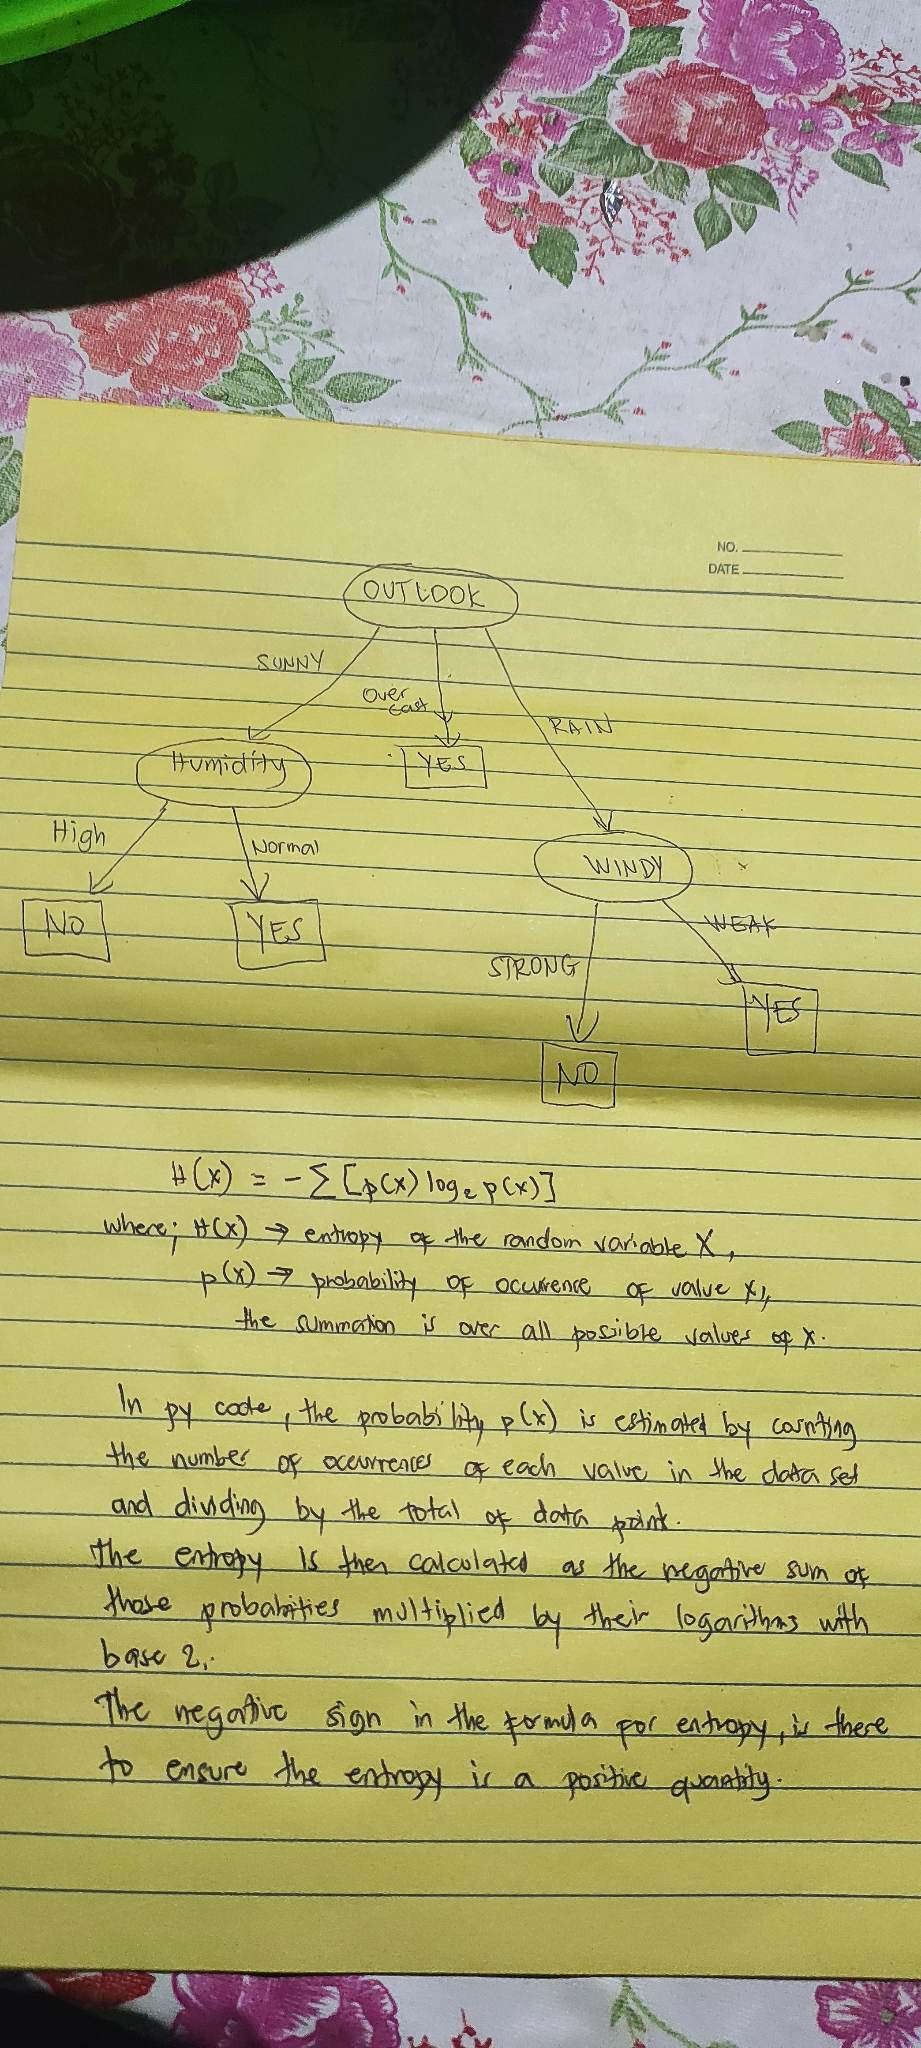 NO.
DATE
OUTLOOK
SUNNY
Over
cast
RAIN
Humidity
YES
High
Normal
WINDY
NO
YES
WEAK
STRONG
YES
NO
H(x) = - Σ [p(x) log₂ p(x)]
where; H(x) → entropy of the random variable X,
p(x) → probability of ocurrence of value x,
the summation is over all possible values of x.
In py code, the probability p(x) is estimated by counting
the number of occurrences of each value in the data set
and dividing by the total of data point.
The entropy is then calculated as the negative sum of
those probabilities multiplied by their logarithms with
base 2.
The negative sign in the formula for entropy, is there
to ensure the entropy is a positive quantity.